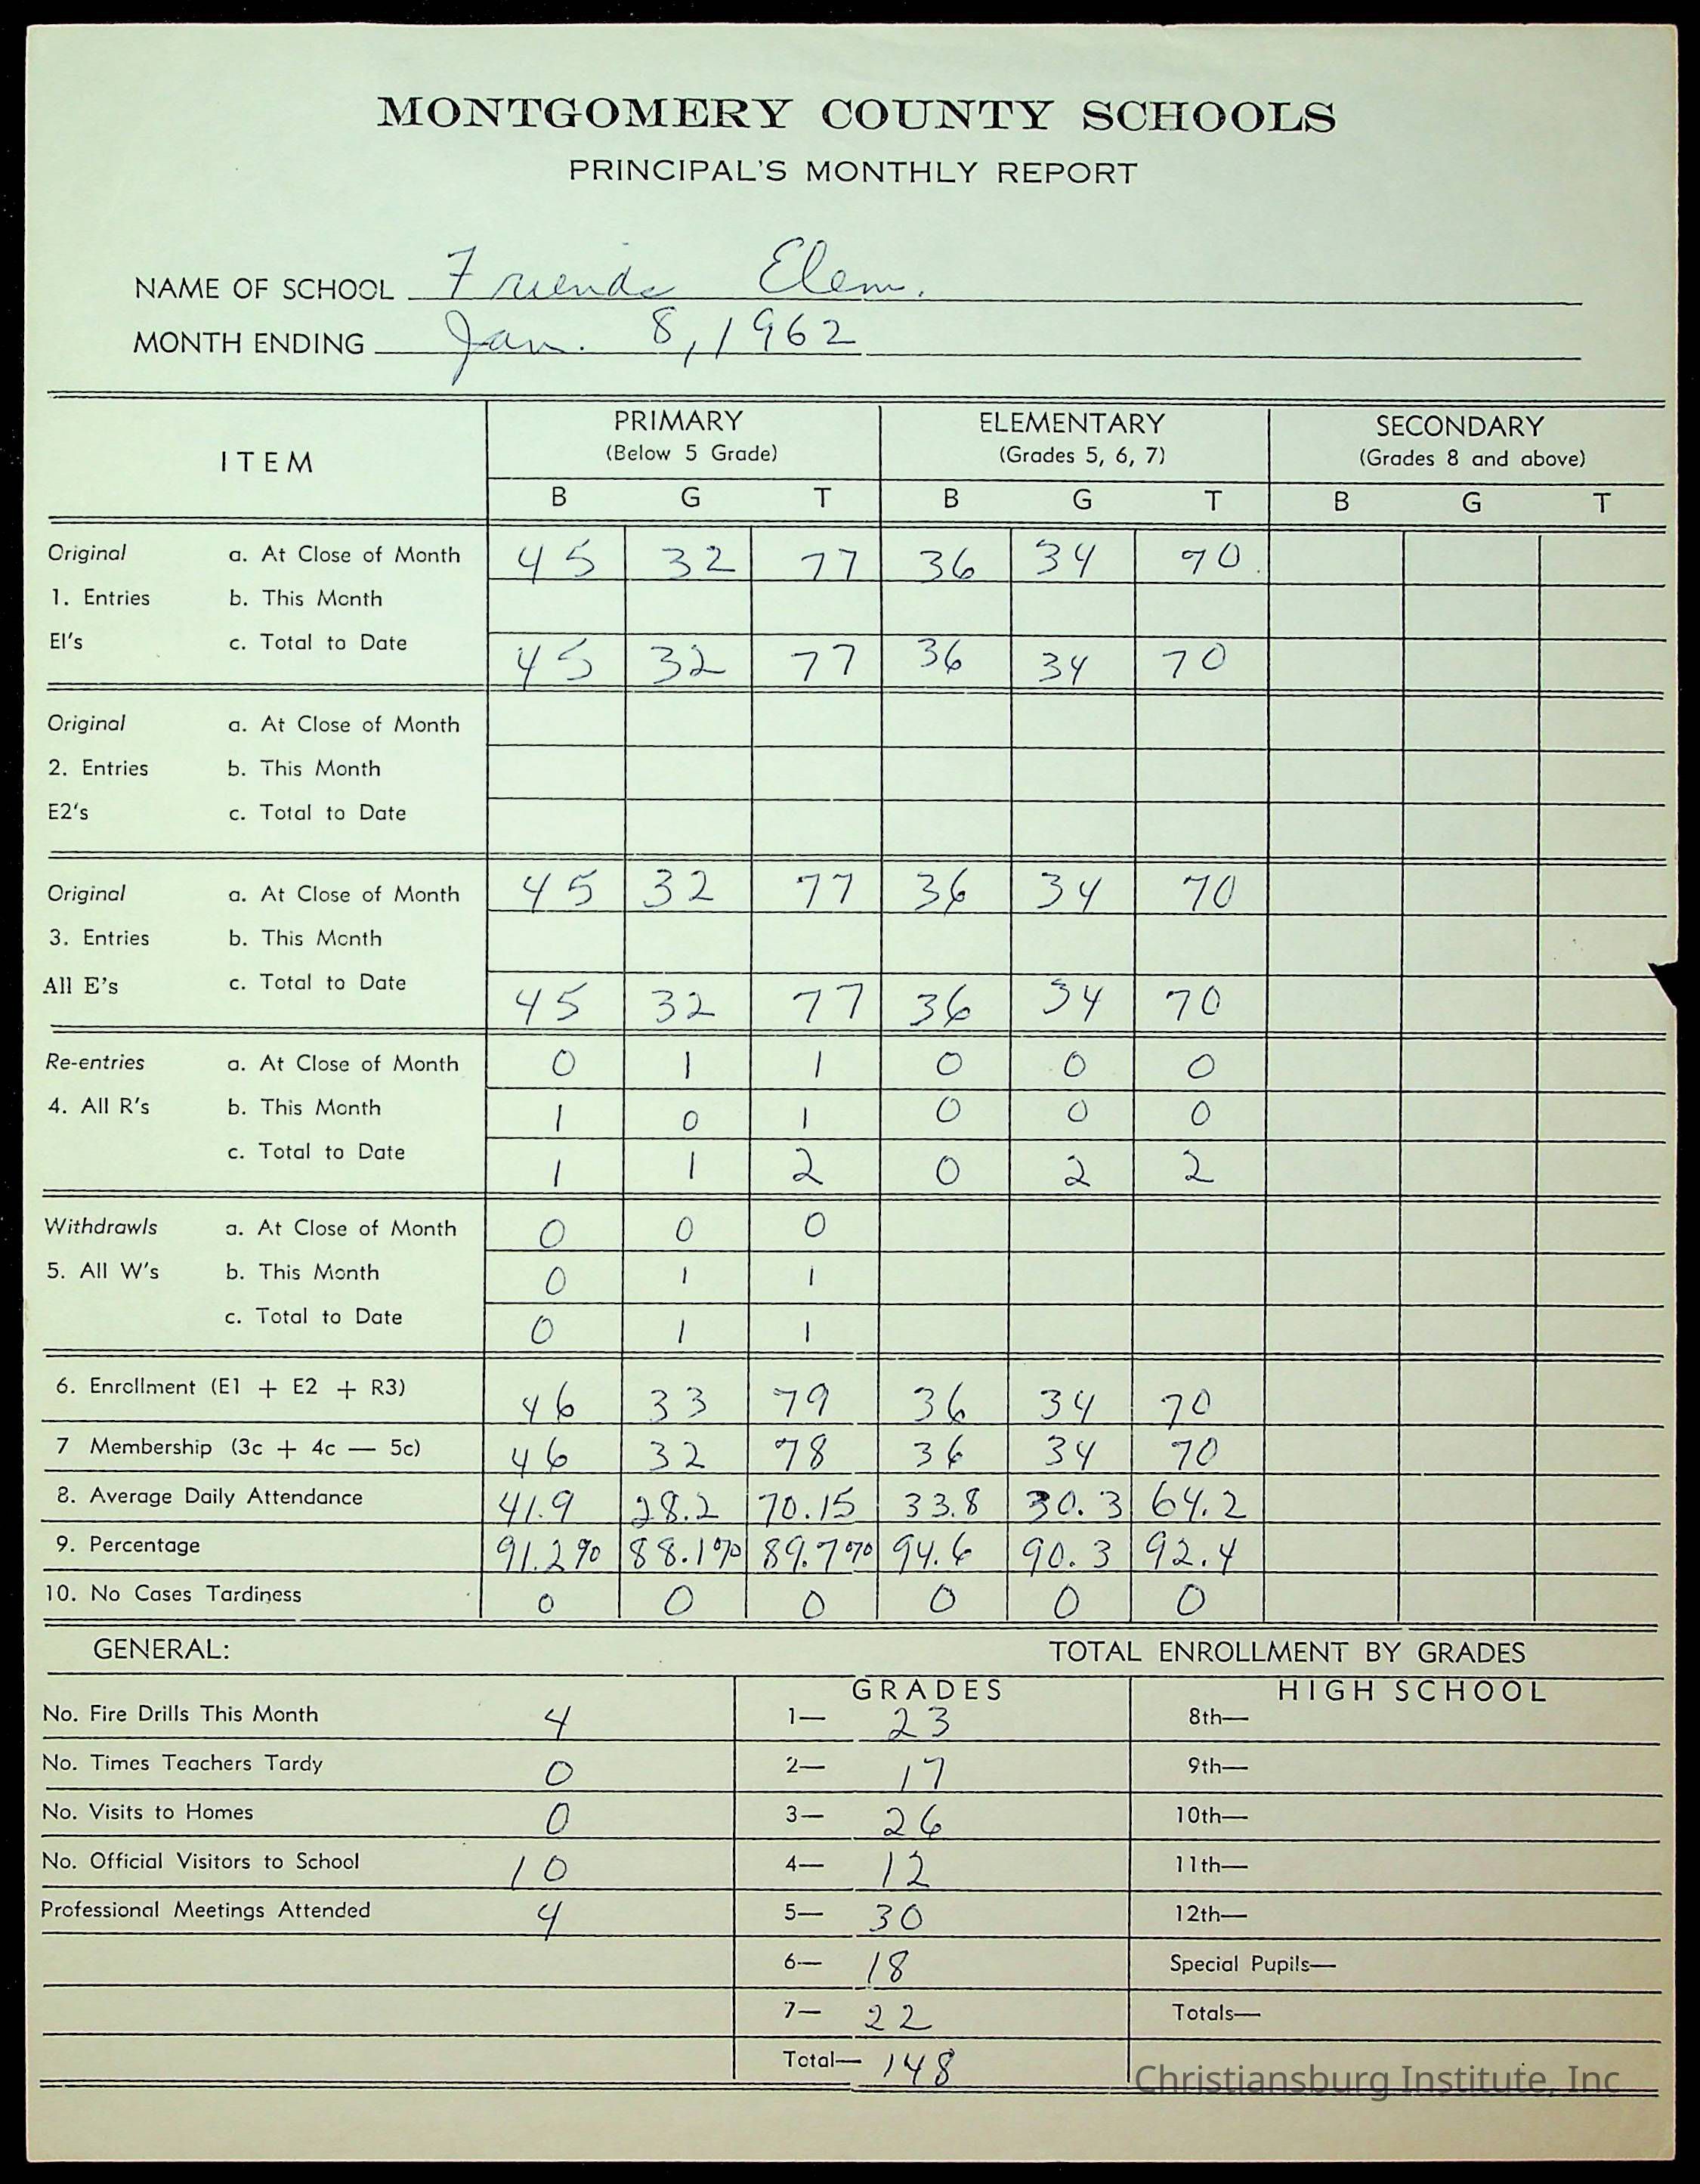 MONTGOMERY COUNTY SCHOOLS
PRINCIPAL'S MONTHLY REPORT
NAME OF SCHOOL Friends Elem.
MONTH ENDING Jan. 8, 1962
ITEM PRIMARY (Below 5 Grade) ELEMENTARY (Grades 5, 6, 7) SECONDARY (Grades 8 and above)
B G T B G T B G T
Original a. At Close of Month 45 32 77 36 34 70
1. Entries b. This Month
El's c. Total to Date 45 32 77 36 34 70
Original a. At Close of Month
2. Entries b. This Month
E2's c. Total to Date
Original a. At Close of Month 45 32 77 36 34 70
3. Entries b. This Month
All E's c. Total to Date 45 32 77 36 34 70
Re-entries a. At Close of Month 0 1 1 0 0 0
4. All R's b. This Month 1 0 1 0 0 0
c. Total to Date 1 1 2 0 2 2
Withdrawls a. At Close of Month 0 0 0
5. All W's b. This Month 0 1 1
c. Total to Date 0 1 1
6. Enrollment (E1 + E2 + R3) 46 33 79 36 34 70
7 Membership (3c + 4c — 5c) 46 32 78 36 34 70
8. Average Daily Attendance 41.9 28.2 70.15 33.8 30.3 64.2
9. Percentage 91.2% 88.1% 89.7% 94.6 90.3 92.4
10. No Cases Tardiness 0 0 0 0 0 0
GENERAL: TOTAL ENROLLMENT BY GRADES
GRADES HIGH SCHOOL
No. Fire Drills This Month 4 1— 23 8th—
No. Times Teachers Tardy 0 2— 17 9th—
No. Visits to Homes 0 3— 26 10th—
No. Official Visitors to School 10 4— 12 11th—
Professional Meetings Attended 4 5— 30 12th—
6— 18 Special Pupils—
7— 22 Totals—
Total— 148
Christiansburg Institute, Inc